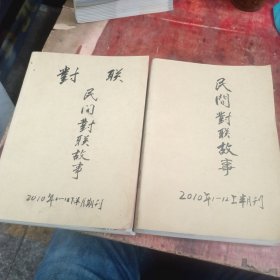 對 联
民间對联故事
2010年1-12下半月期刊
民間對联故事
2010年1-12上半月刊